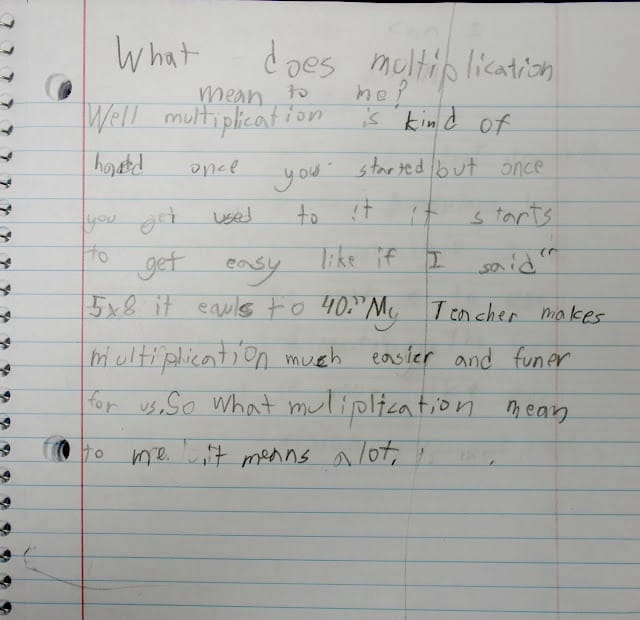 What does multiplication
mean to me?
Well multiplication is kind of
hard once you started but once
you get used to it it starts
to get easy like if I said "
5x8 it eauls to 40." My Teacher makes
multiplication much easier and funer
for us. So What muliplication mean
to me. it means a lot.